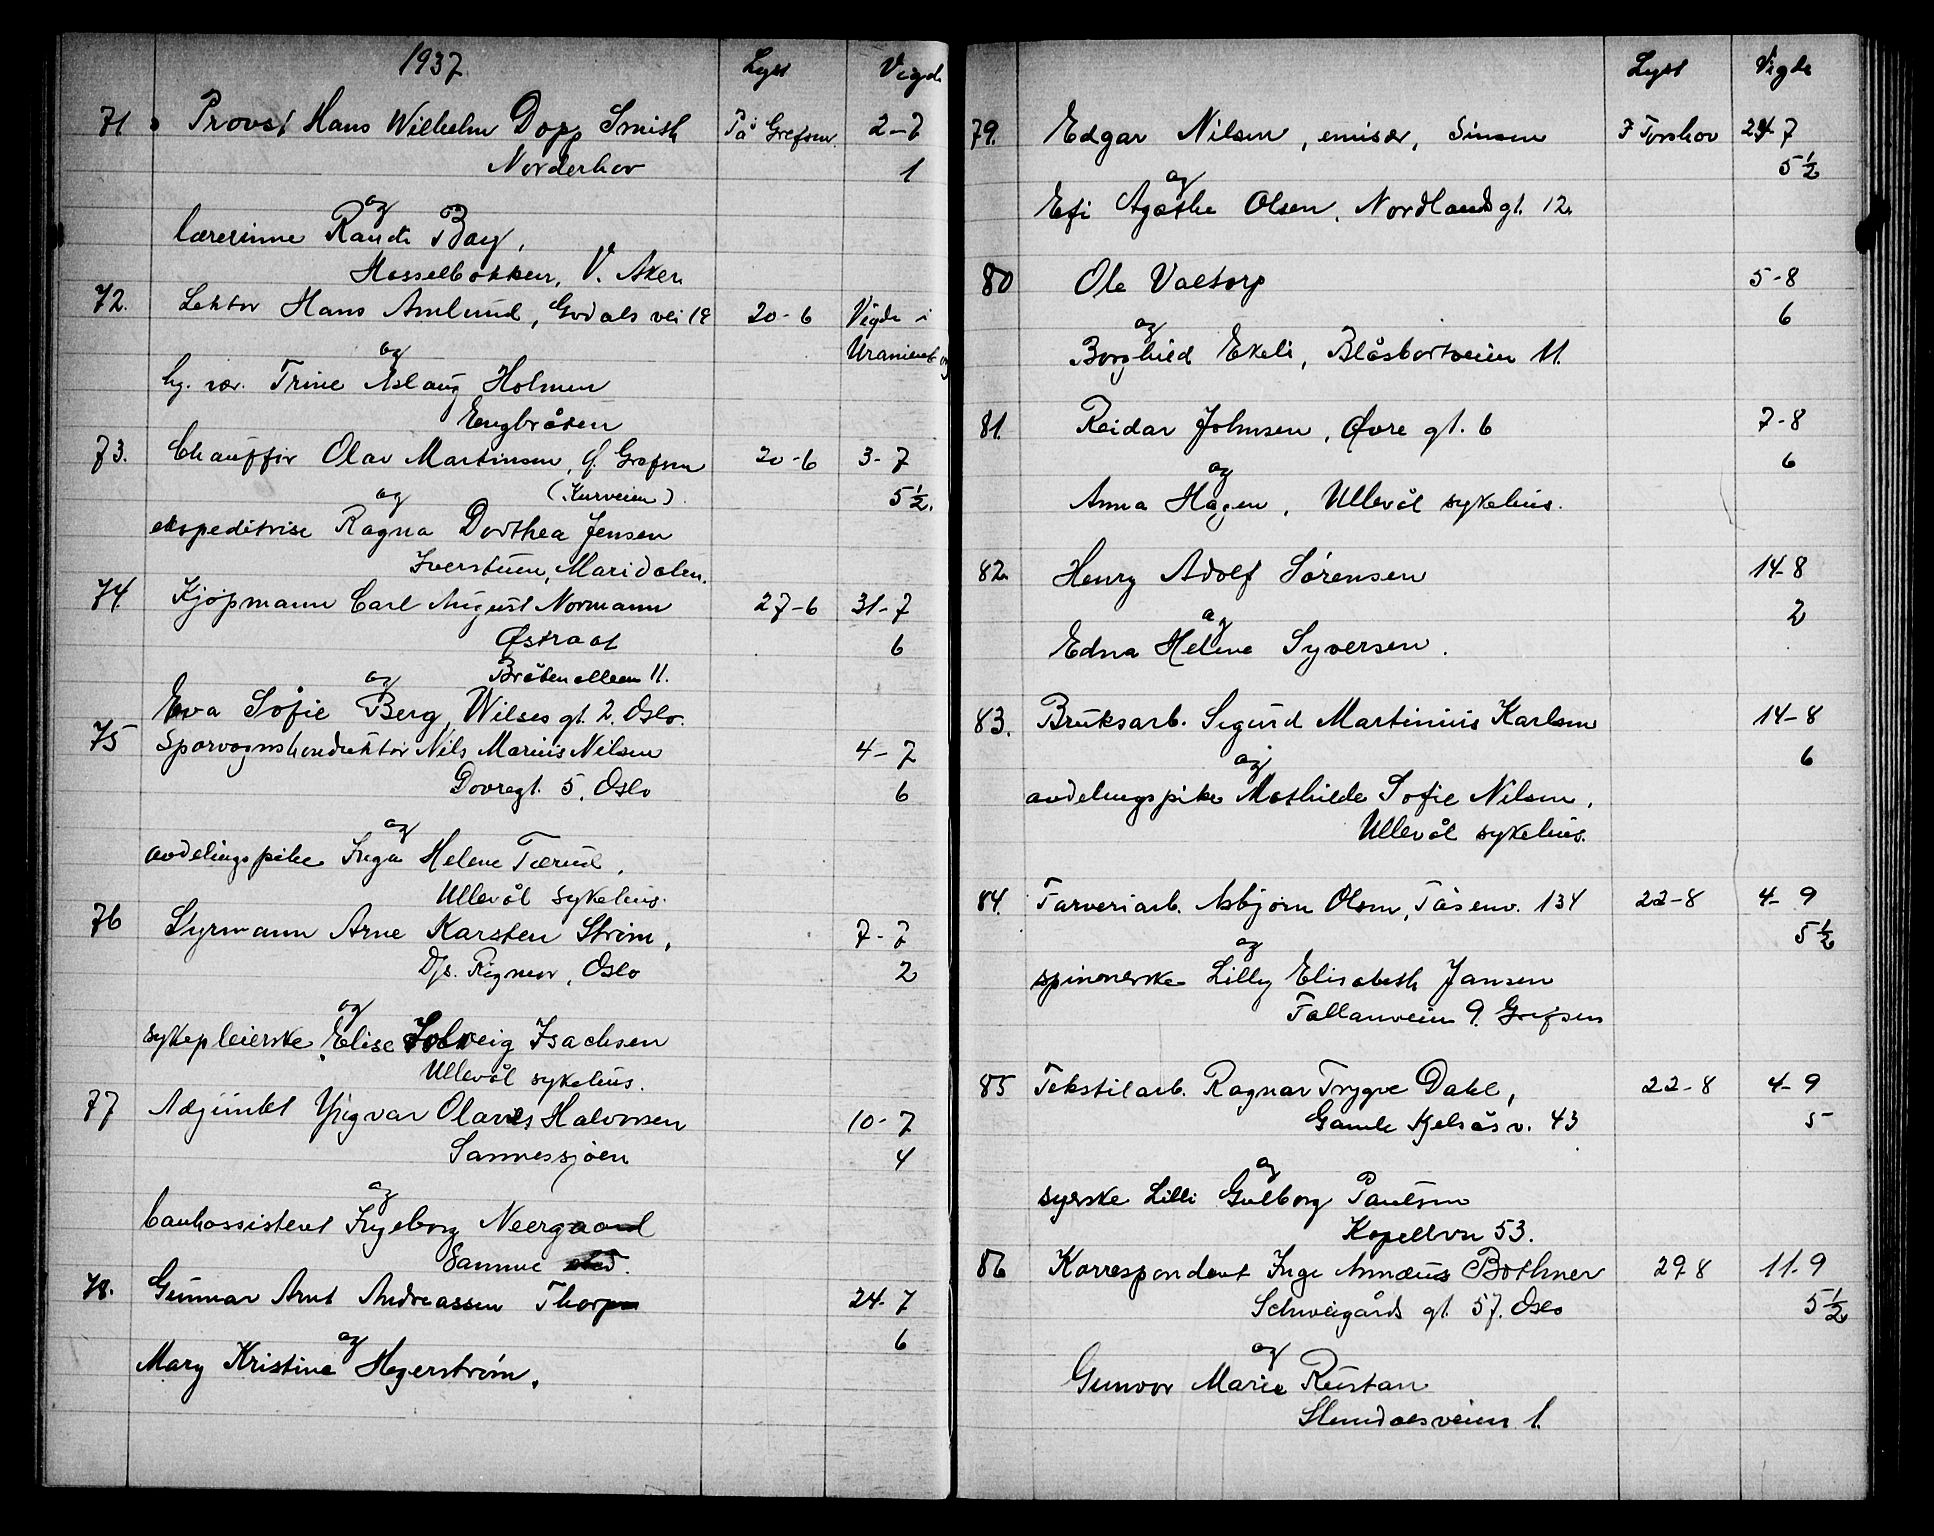 1937 Lyst Vigde
71 Provst Hans Wilhelm Dopp Smith På Grefsen. 2-7
Norderhov 1
og
lærerinne Randi Bay,
Hasselbakken, V. Aker.
72. Lektor Hans Amlund, Godals vei 18 20-6 Vigde i
og Uranienborg
hj. vær. Trine Aslaug Holmen
Engbråten
73. Chauffør Olav Martinsen, Grefsen 20-6 3-7
og (Kurveien). 5½.
ekspeditrise Ragna Dorthea Jensen
Iverstuen, Maridalen.
74 Kjøpmann Carl August Normann 27-6 31-7
Østraat 6
og Bråtenalleen 11.
Eva Sofie Berg, Wilses gt. 2. Oslo.
75 Sporvognskonduktør Nils Marius Nilsen 4-7
Dovregt. 5. Oslo 6
og
avdelingspike Inga Helene Tærud,
Ullevål sykehus.
76 Styrmann Arne Karsten Strøm, 7-7
D/s. Rigmor, Oslo 2
og
sykepleierske Elise Solveig Isachsen
Ullevål sykehus.
77 Adjunkt Yngvar Olaves Halvorsen 10-7
Sannessjøen 4
og
bankassistent Ingeborg Neergaard
Samme sted.
78. Gunnar Arnt Andreassen Thorp 24-7
og 6
Mary Kristine Hegerstrøm.
Lyst Vigde
79. Edgar Nilsen, emisær, Sinsen I Torshov 24-7
og 5½
Efi Agathe Olsen, Nordlands gt. 12.
80 Ole Valtorp 5-8
og 6
Borghild Ekeli, Blåsbortveien 11.
81. Reidar Johnsen, Øvre gt. 6 7-8
og 6
Anna Hagen, Ullevål sykehus.
82. Henry Adolf Sørensen 14-8
og 2
Edna Helene Syversen.
83. Bruksarb. Sigurd Martinius Karlsen 14-8
og 6
avdelingspike Mathilde Sofie Nilsen,
Ullevål sykehus.
84. Farveriarb. Asbjørn Olsen, Tåsenv. 134 22-8 4-9
og 5½
spinnerske Lilly Elisabeth Jansen
Fallanveien 9. Grefsen
85 Tekstilarb. Ragnar Trygve Dahl, 22-8 4-9
Gamle Kjelsås v. 43 5
og
syerske Lilli Gulborg Paulsen
Kapellvn 53.
86 Korrespondent Inge Annæus Bothner 29.8 11.9
Schweigårds gt. 57. Oslo 5½
og
Gunvor Marie Rustan
Stendalsveien 1.